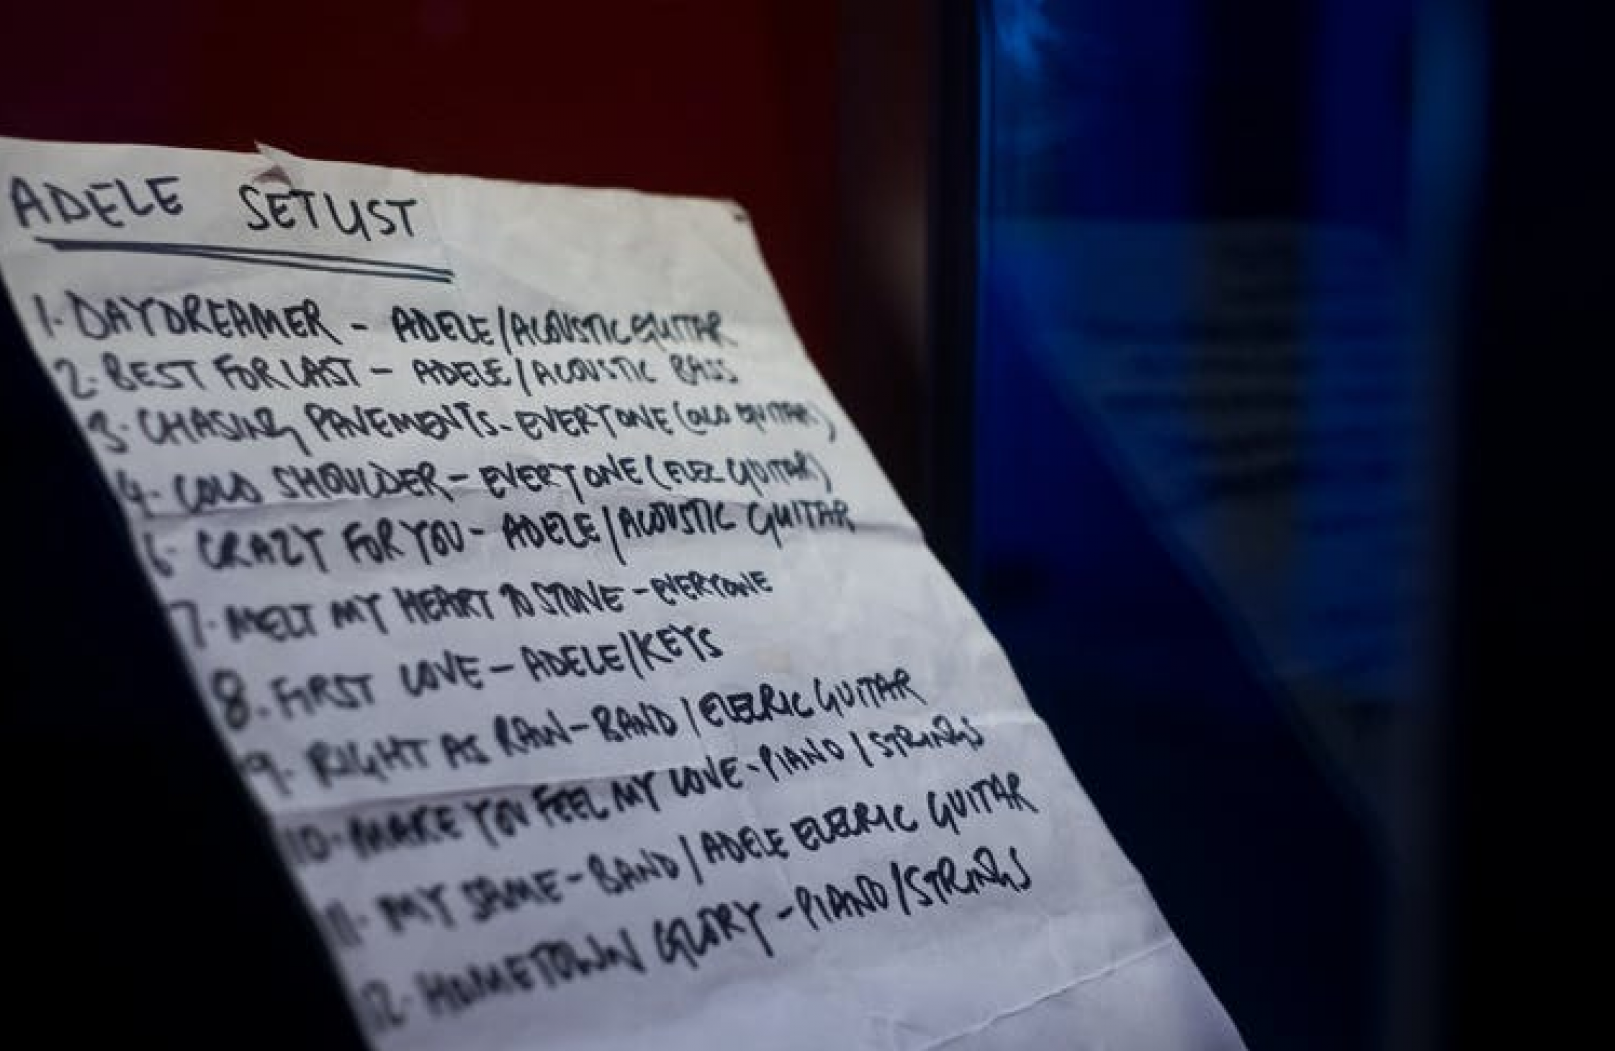 ADELE SETLIST
1. DAYDREAMER - ADELE/ACOUSTIC GUITAR
2. BEST FOR LAST - ADELE/ACOUSTIC BASS
3. CHASING PAVEMENTS - EVERYONE ( GUITAR)
4. COLD SHOULDER - EVERYONE (ELEC GUITAR)
6. CRAZY FOR YOU - ADELE/ACOUSTIC GUITAR
7. MELT MY HEART TO STONE - EVERYONE
8. FIRST LOVE - ADELE/KEYS
9. RIGHT AS RAIN - BAND/ELECRIC GUITAR
10. MAKE YOU FEEL MY LOVE - PIANO/STRINGS
11. MY SAME - BAND/ADELE ELECRIC GUITAR
12. HOMETOWN GLORY - PIANO/STRINGS